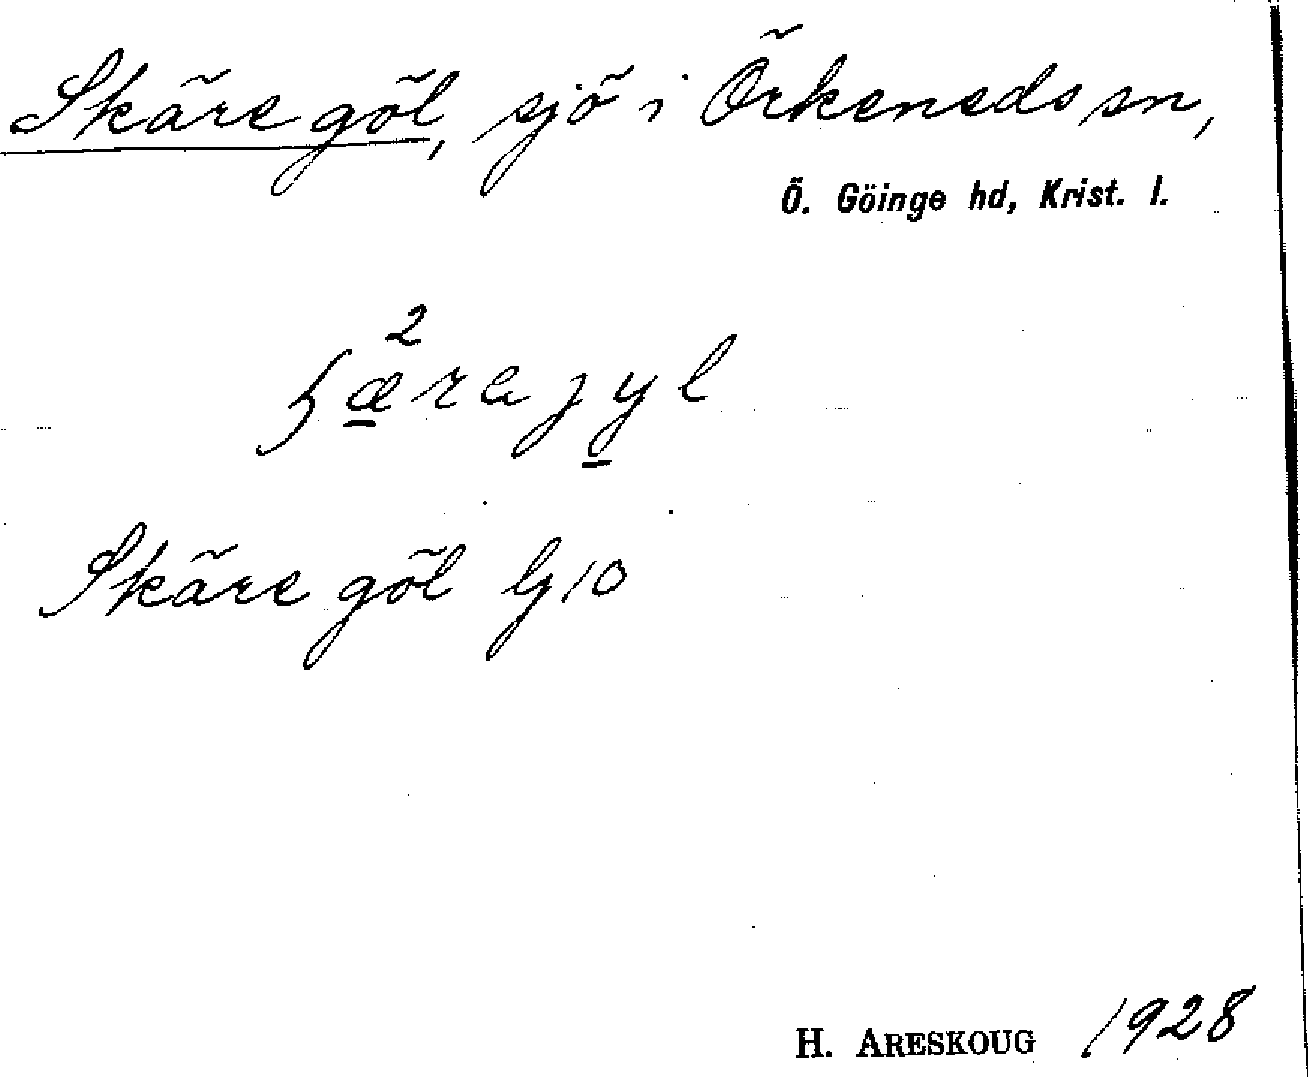 Skäre göl, sjö i Örkeneds sn,
Ö. Göinge hd, Krist. l.
2
ʃæra jyl
Skäre göl G10
H. ARESKOUG 1928